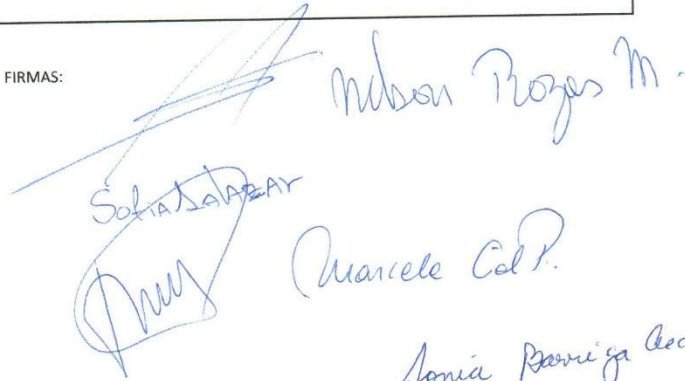 FIRMAS:
Nelson Rozas M.
Sofia Salazar
Marcela Cd P.
Sonia Barriga